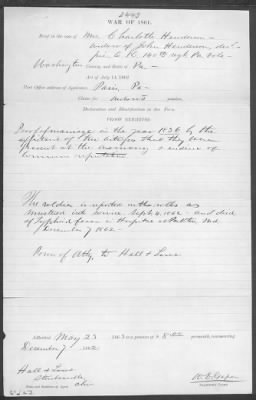 2443
WAR OF 1861.
Brief in the case of Mrs Charlotte Henderson
widow of John Henderson dec'd
Co. E. 140th Regt Pa. Vols.
Washington County, and State of Pa
Act of July 14, 1862
Post Office address of Applicant, Paris, Pa
Claim for widow's pension.
Declaration and Identification in due Form.
PROOF EXHIBITED
Proof of marriage in the year 1836 by the
affidavit of two witnesses that they were
present at the ceremony & evidence of
common reputation
The soldier is reported on the rolls as
mustered into service Sept 4, 1862 and died
of Typhoid fever in Hospital at Md
December 7 1862
Power of Atty to Hall & Lowe
Admitted May 23 186 3 to a pension of $ 8 00 per month, commencing
December 7 1862
Hall & Lowe
Steubenville
Ohio
Name and Residence of Agent.
Examining Clerk.